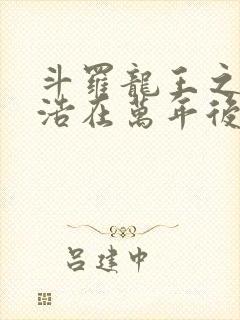 斗羅龍王之
浩在萬年後
呂建中